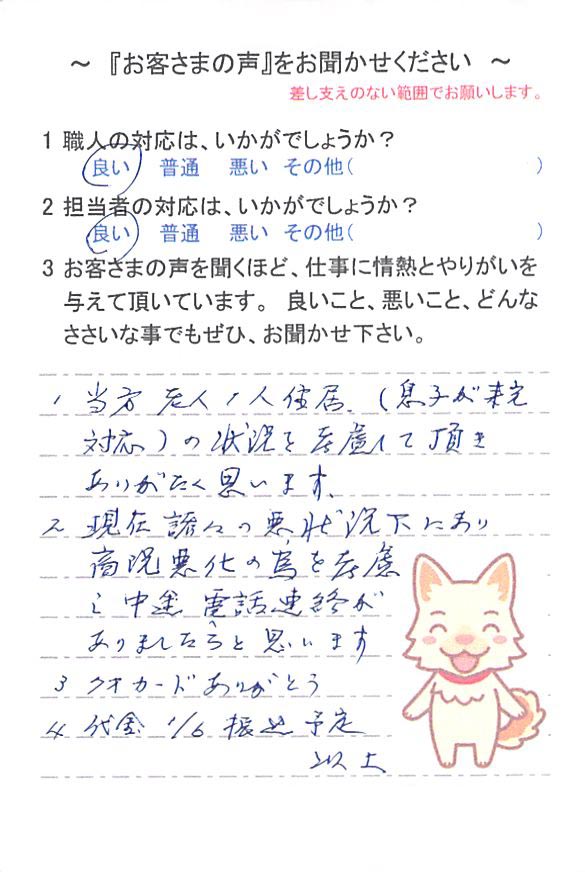 ～ 『お客さまの声』をお聞かせください ～
差し支えのない範囲でお願いします。
1 職人の対応は、いかがでしょうか？
良い 普通 悪い その他( )
2 担当者の対応は、いかがでしょうか？
良い 普通 悪い その他( )
3 お客さまの声を聞くほど、仕事に情熱とやりがいを
与えて頂いています。 良いこと、悪いこと、どんな
ささいな事でもぜひ、お聞かせ下さい。
1 当方 老人1人住居、(息子が来宅
対応)の状況を考慮して頂き
ありがたく思います。
2 現在 諸々の悪状況下にあり
悪化の為を考慮
中途 電話連絡が
ありましたらと思います
3 クオカードありがとう
4 代金 1/6 振込予定
以上